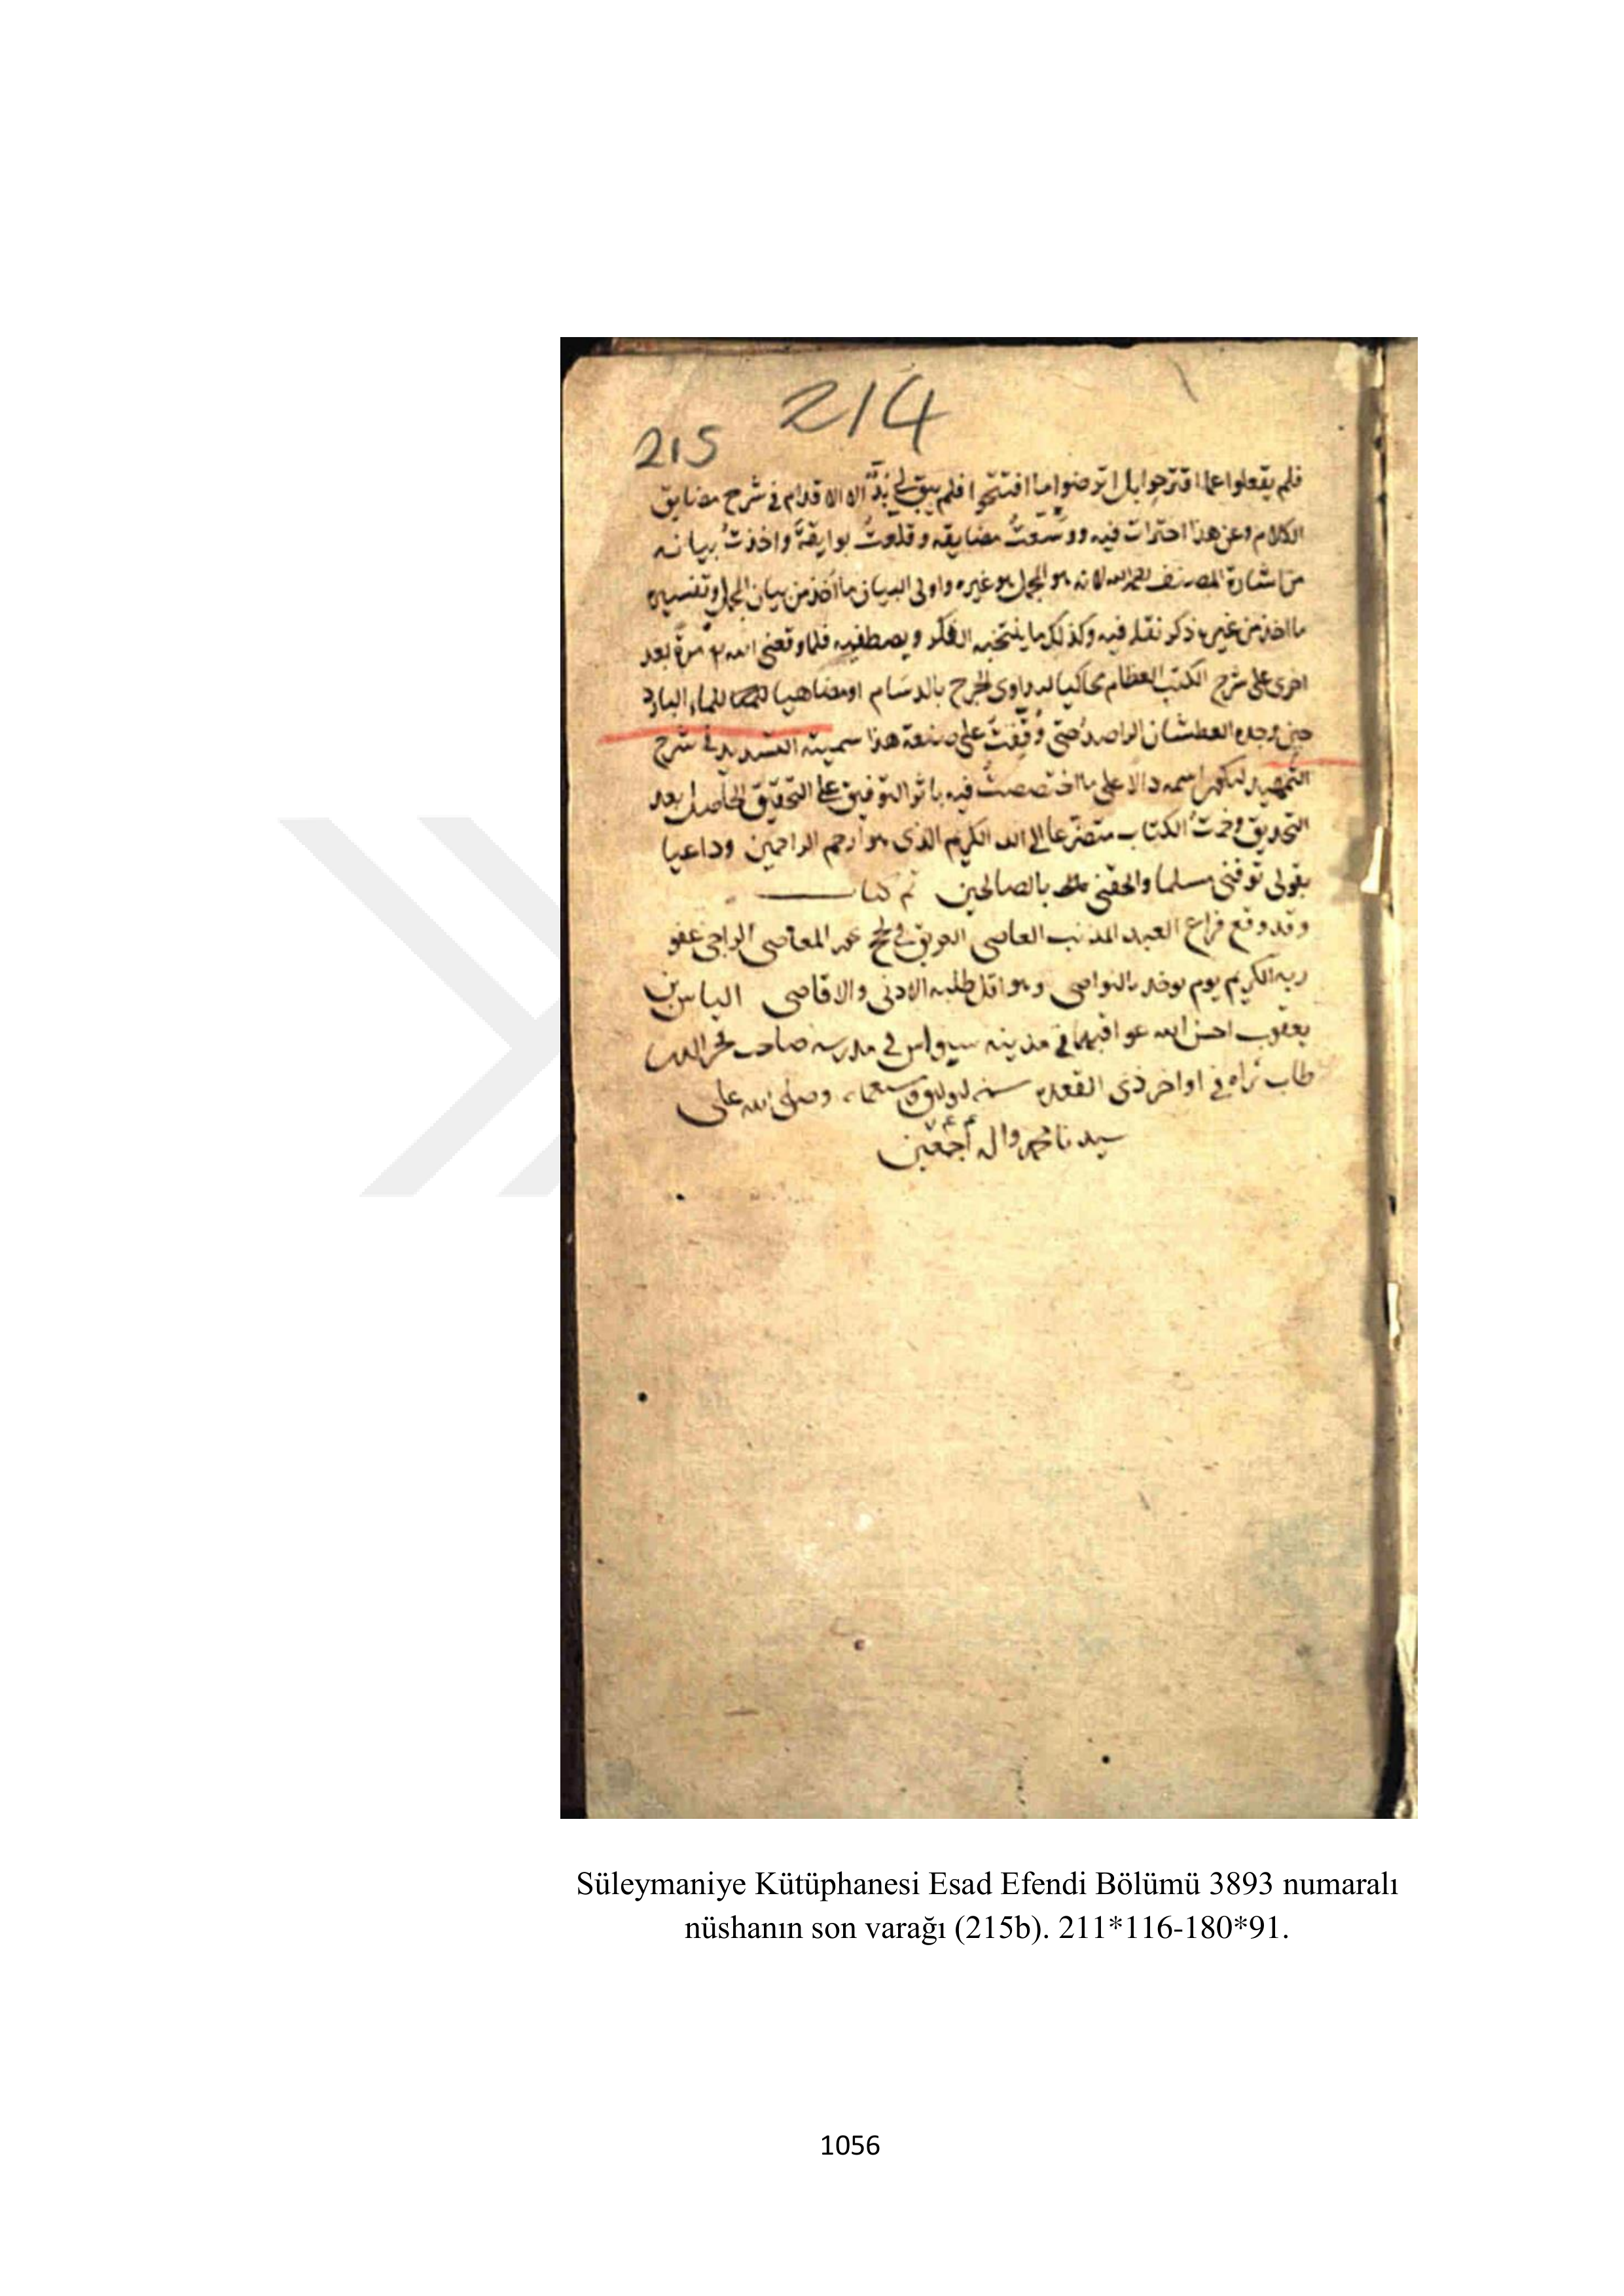 214
215
فلم يفعلوا عما اقترحوا بل اترضوا ما افتتحوا فلم يبق لي بدّ الا الاقدام في شرح مضايق
الكلام وعن هذا احترات فيه ووسعتُ مضايقه وقلعتُ بوايقهَ واخذتُ بيانه
من اشارة المصنف لانه هو المجمل هو غيره واولى البيان ما اخذ من بيان المجمل وتفسيره
ما اخذ من غيره ذكر نقله فيه وكذلك ما ينتخبه الفكر ويصطفيه فلما وقعنى الله مرة بعد
اخرى على شرح الكتب العظام محاكيا لمداوى الجرح بالدسام او مضاهيا للماء البارد
حين وجده العطشان الراصد حتى وُقِفتُ على صنعة هذا سميته التسديد في شرح
التمهيد ليكون اسمه دالا على ما اختصصتُ فيه باثر التوفيق على التحقيق الحاصل بعد
التدقيق وختمتُ الكتاب متضرعا الى الله الكريم الذى هو ارحم الراحمين وداعيا
بقولى توفنى مسلما والحقنى بالصالحين تم كتاب
وقد وقع فراغ العبد المذنب العاصى الغريق في لجج بحر المعاصى الراجى عفو
ربه الكريم يوم يوخذ بالنواصى وهو اقل طلبه الادنى والاقاصى الياس بن
يعقوب احسن الله عواقبهما في مدينه سيواس في مدرسه صاحب فخر الدين
طاب ثراه في اواخر ذى القعده سنه وسبعمائه وصلى الله على
سيدنا محمد واله اجمعين
Süleymaniye Kütüphanesi Esad Efendi Bölümü 3893 numaralı
nüshanın son varağı (215b). 211*116-180*91.
1056